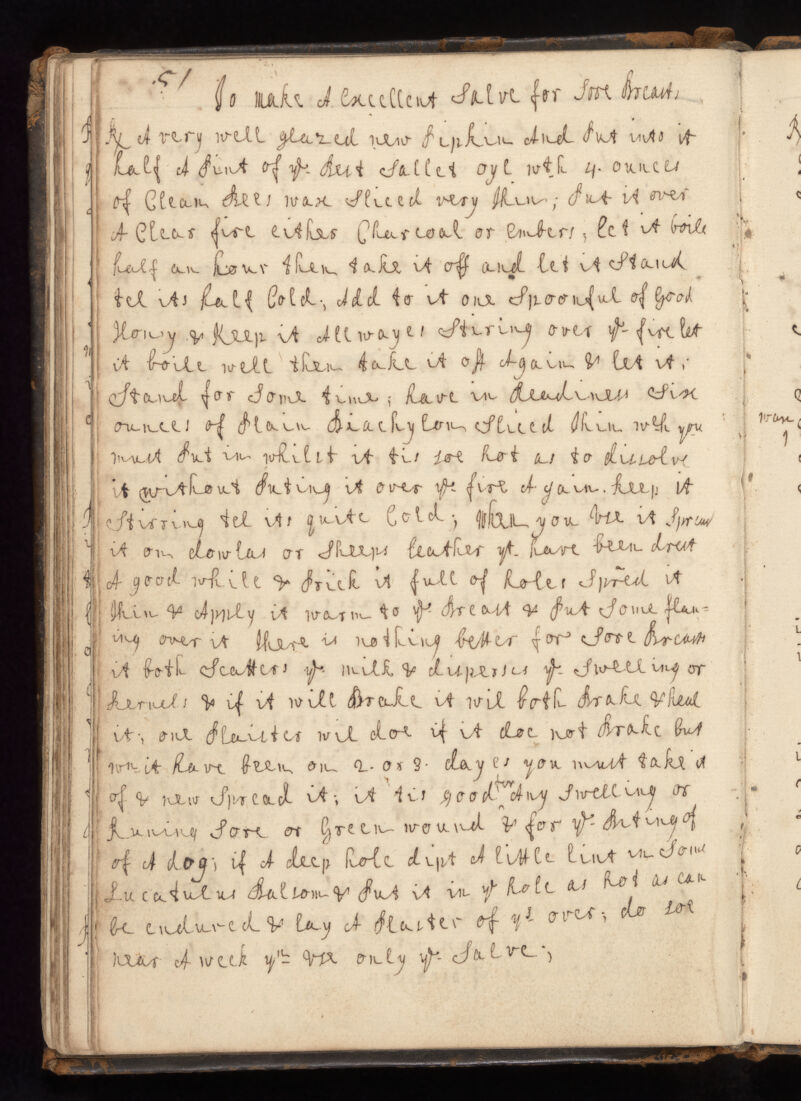 51
To make A Excellent Salve for Sore Breasts
℞ A very well glazed new Pipkin And Put into it
half A Pint of ye Best Sallet oyl wth 4. ounces
of Clean Bees wax Sliced very thin; Put it over
A Clear fire either Charcoal or Embers, let it boile
half an hour then take it off and let it Stand
tel its half Cold; Add to it one Spoonful of Good
Hony & Keep it Allwayes Stiring over ye fire let
it boile well then take it oft Again & let it
Stand for Some time; have in Readiness Six
ounces of Plain Diachylon Sliced thin wth you
must Put in whilst it tis soe hot as to dissolve
it without Puting it over ye fire A gain. keep it
Stirring tel its quite Cold; When you Use it Spread
it on dowlas or Sheeps leather yt have been drest
A good while & Prick it full of holes Spred it
thin & Apply it warm to ye Breast & Put Some flan=
ing over it there is nothing better for Sore Breasts
it both Scatters ye milk & disperses ye Swelling or
kernels & if it will Brake it wil both Brake & heal
it; one Plaister wil doe if it doe not Brake but
wn it have been on 2. or 3. dayes you must take it
of & new Spread it; it tis good for Any Swelling or
Runing Sore or Green wound & for ye Biting of
of A dog; if A deep hole dipt A little lint in Some
Lucatulus Balsom & Put it in ye hole as hot as can
be endured & lay A Plaster of ys over; do soe
near A week yn Use only ye Salve;
wan